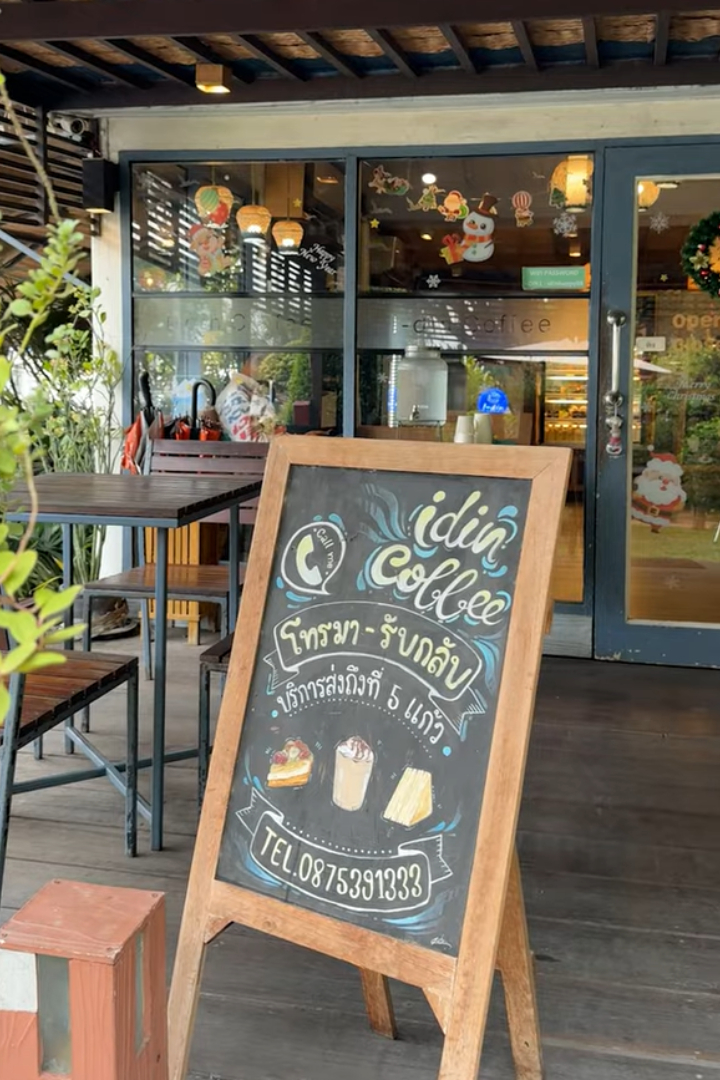 Happy
New Year
WIFI PASSWORD
-din Coffee
Open
Merry
Christmas
idin
coffee
Call me
โทรมา - รับกลับ
บริการส่งถึงที่ 5 แก้ว
TEL.0875391333